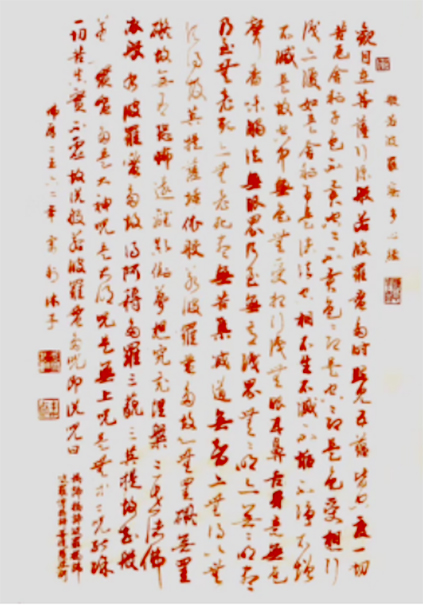 般若波羅蜜多心經
觀自在菩薩行深般若波羅蜜多時照見五蘊皆空度一切
苦厄舍利子色不異空空不異色色即是空空即是色受想行
識亦復如是舍利子是諸法空相不生不滅不垢不淨不增
不減是故空中無色無受想行識無眼耳鼻舌身意無色
聲香味觸法無眼界乃至無意識界無無明亦無無明盡
乃至無老死亦無老死盡無苦集滅道無智亦無得以無
所得故菩提薩埵依般若波羅蜜多故心無罣礙無罣
礙故無有恐怖遠離顛倒夢想究竟涅槃三世諸佛
依般若波羅蜜多故得阿耨多羅三藐三菩提故知般
若波羅蜜多是大神咒是大明咒是無上咒是無等等咒能除
一切苦真實不虛故說般若波羅蜜多咒即說咒曰
揭諦揭諦波羅揭諦
波羅僧揭諦菩提薩婆訶
佛曆二五六一年